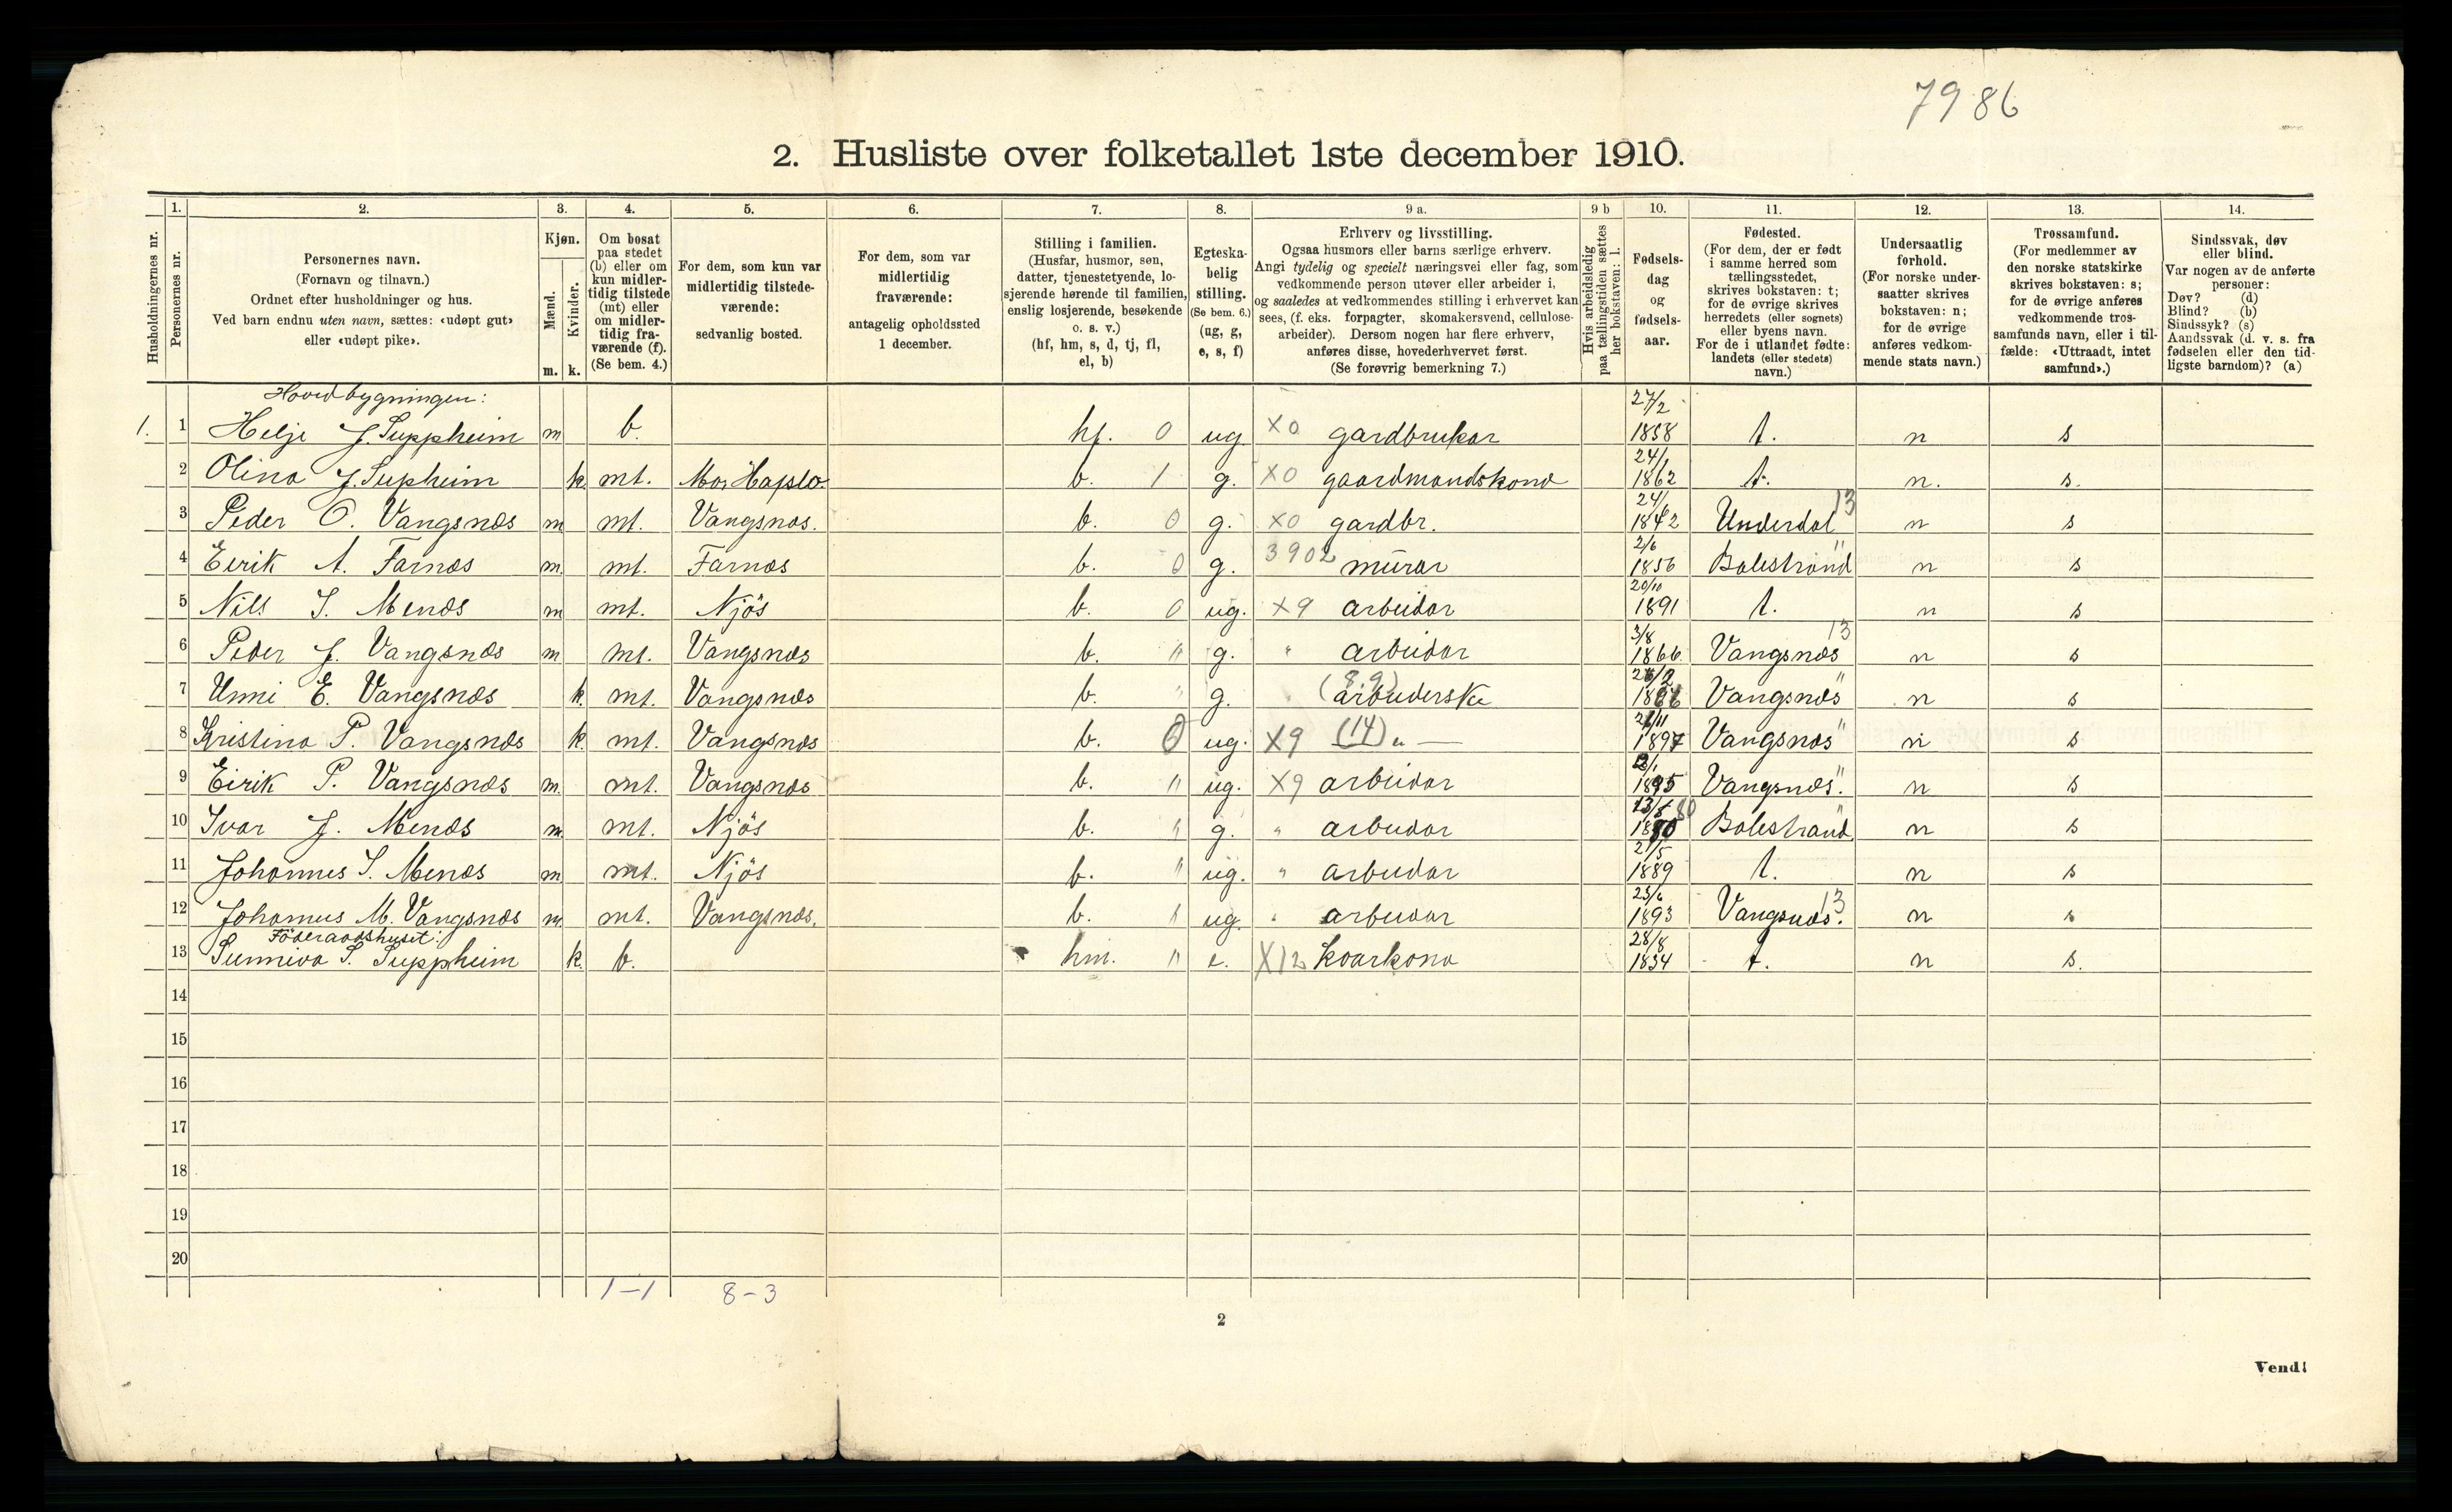 7986
2. Husliste over folketallet 1ste december 1910.
Husholdningernes nr.
1.
Personernes nr.
2.
Personernes navn.
(Fornavn og tilnavn.)
Ordnet efter husholdninger og hus.
Ved barn endnu uten navn, sættes: «udøpt gut»
eller «udøpt pike».
3.
Kjøn.
Mænd.
Kvinder.
m. k.
4.
Om bosat
paa stedet
(b) eller om
kun midler-
tidig tilstede
(mt) eller
om midler-
tidig fra-
værende (f).
(Se bem. 4.)
5.
For dem, som kun var
midlertidig tilstede-
værende:
sedvanlig bosted.
6.
For dem, som var
midlertidig
fraværende:
antagelig opholdssted
1 december.
7.
Stilling i familien.
(Husfar, husmor, søn,
datter, tjenestetyende, lo-
sjerende hørende til familien,
enslig losjerende, besøkende
o. s. v.)
(hf, hm, s, d, tj, fl,
el, b)
8.
Egteska-
belig
stilling.
(Se bem. 6.)
(ug, g,
e, s, f)
9 a.
Erhverv og livsstilling.
Ogsaa husmors eller barns særlige erhverv.
Angi tydelig og specielt næringsvei eller fag, som
vedkommende person utøver eller arbeider i,
og saaledes at vedkommendes stilling i erhvervet kan
sees, (f. eks. forpagter, skomakersvend, cellulose-
arbeider). Dersom nogen har flere erhverv,
anføres disse, hovederhvervet først.
(Se forøvrig bemerkning 7.)
9 b
Hvis arbeidsledig
paa tællingstiden sættes
her bokstaven: l.
10.
Fødsels-
dag
og
fødsels-
aar.
11.
Fødested.
(For dem, der er født
i samme herred som
tællingsstedet,
skrives bokstaven: t;
for de øvrige skrives
herredets (eller sognets)
eller byens navn.
For de i utlandet fødte:
landets (eller stedets)
navn.)
12.
Undersaatlig
forhold.
(For norske under-
saatter skrives
bokstaven: n;
for de øvrige
anføres vedkom-
mende stats navn.)
13.
Trossamfund.
(For medlemmer av
den norske statskirke
skrives bokstaven: s;
for de øvrige anføres
vedkommende tros-
samfunds navn, eller i til-
fælde: «Uttraadt, intet
samfund».)
14.
Sindssvak, døv
eller blind.
Var nogen av de anførte
personer:
Døv? (d)
Blind? (b)
Sindssyk? (s)
Aandssvak (d. v. s. fra
fødselen eller den tid-
ligste barndom)? (a)
Hovedbygningen:
1. 1 Helje J. Suppheim m b. hf. 0 ug. X0 gardbrukar 27/2 1858 t. n s
2 Olina J. Supheim k. mt. b. 1 g. X0 gaardmandskona 24/1 1862 t. n. s.
3 Peder O. Vangsnæs m mt. Vangsnæs. b. 0 g. X0 gardbr. 24/1 1842 Underdal 13 n s
4 Eirik A. Farnæs m. mt. Farnæs b. 0 g. 3902 murar 2/6 1856 Balestrand " n s
5 Nils I. Menæs m mt. Njøs b. 0 ug. X9 arbeidar 20/10 1891 t. n s
6 Peder J. Vangsnæs m mt. Vangsnæs b. " g. " arbeidar 3/8 1866 Vangsnæs 13 n s
7 Unni E. Vangsnæs k. mt. Vangsnæs b. " g. (8,9) arbeiderske Vangsnæs " n s
8 Kristina P. Vangsnæs k. mt. Vangsnæs b. 0 ug. X9 (14) „ — 1897 Vangsnæs " n s
9 Eirik P. Vangsnæs m. mt. Vangsnæs b. " ug. X9 arbeidar 1895 Vangsnæs. " n s
10 Ivar J. Menæs m. mt. Njøs b. " g. " arbeidar 1880 80 Balestrand " n s
11 Johannes I. Menæs m mt. Njøs b. " ug. " arbeidar 21/5 1889 t. n s
12 Johannes M. Vangsnæs m. mt. Vangsnæs. b. " ug. " arbeidar 23/6 1893 Vangsnæs. 13 n s
Föderaadshuset:
13 Sunniva S. Suppheim k. b. hm. " e. X12 kaarkona 28/8 1834 t. n s.
14
15
16
17
18
19
20
1-1 8-3
2
Vend!